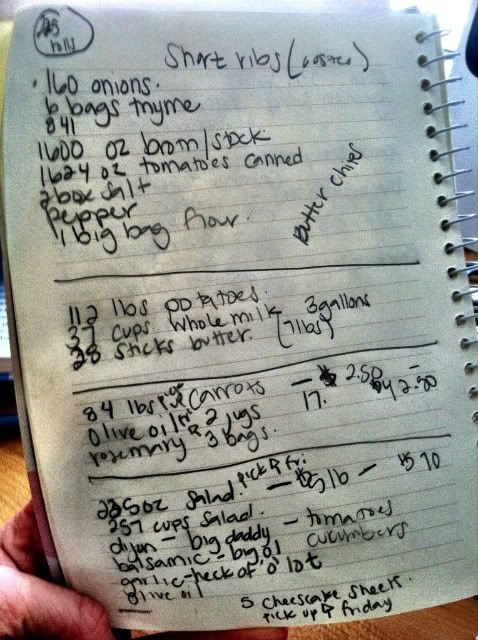 225
rolls
Short ribs (costco)
160 onions.
6 bags thyme
841
1600 oz broth/stock
1624 oz tomatoes canned
2 box salt
pepper
1 big bag flour.
Butter chips
112 lbs potatoes.
37 cups whole milk 3 gallons
28 sticks butter. (7 lbs)
84 lbs carrots — 2.50 —
olive oil 2 jugs 17. $42.50
rosemary 3 bags.
pick up fri
225 oz salad. — lb — $70
257 cups salad.
dijon — big daddy — tomatoes
balsamic - big ol cucumbers
garlic - heck of 'o' lot
olive oil
5 cheescake sheets.
pick up friday
greenroom